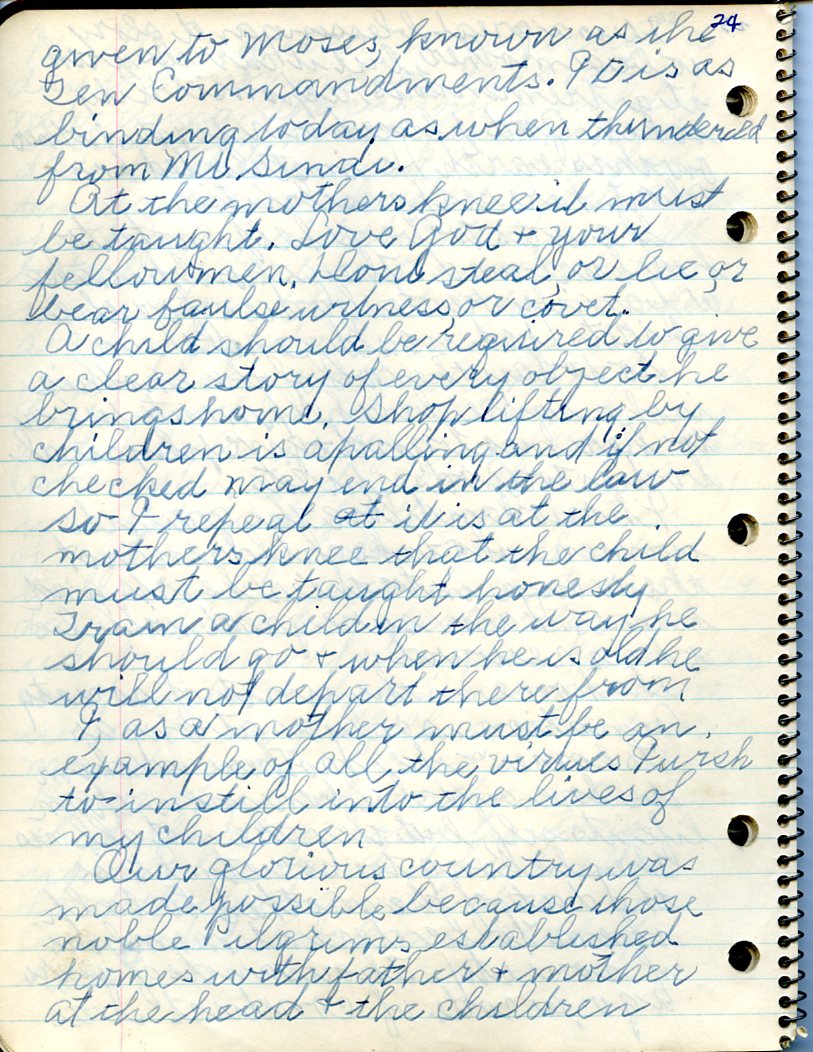 24
given to Moses, known as the
Ten Commandments. It is as
binding today as when thundered
from Mt. Sinai.
At the mothers knee it must
be taught. Love God + your
fellowmen. Dont steal, or lie, or
bear faulse witness, or covet.
A child should be required to give
a clear story of every object he
brings home. Shop lifting by
children is apalling and if not
checked may end in the law
so I repeat at it is at the
mothers knee that the child
must be taught honesty
Train a child in the way he
should go + when he is old he
will not depart there from
I, as a mother must be an
example of all the virtues I wish
to instill into the lives of
my children
Our glorious country was
made possible because those
noble Pilgrims established
homes with father + mother
at the head + the children